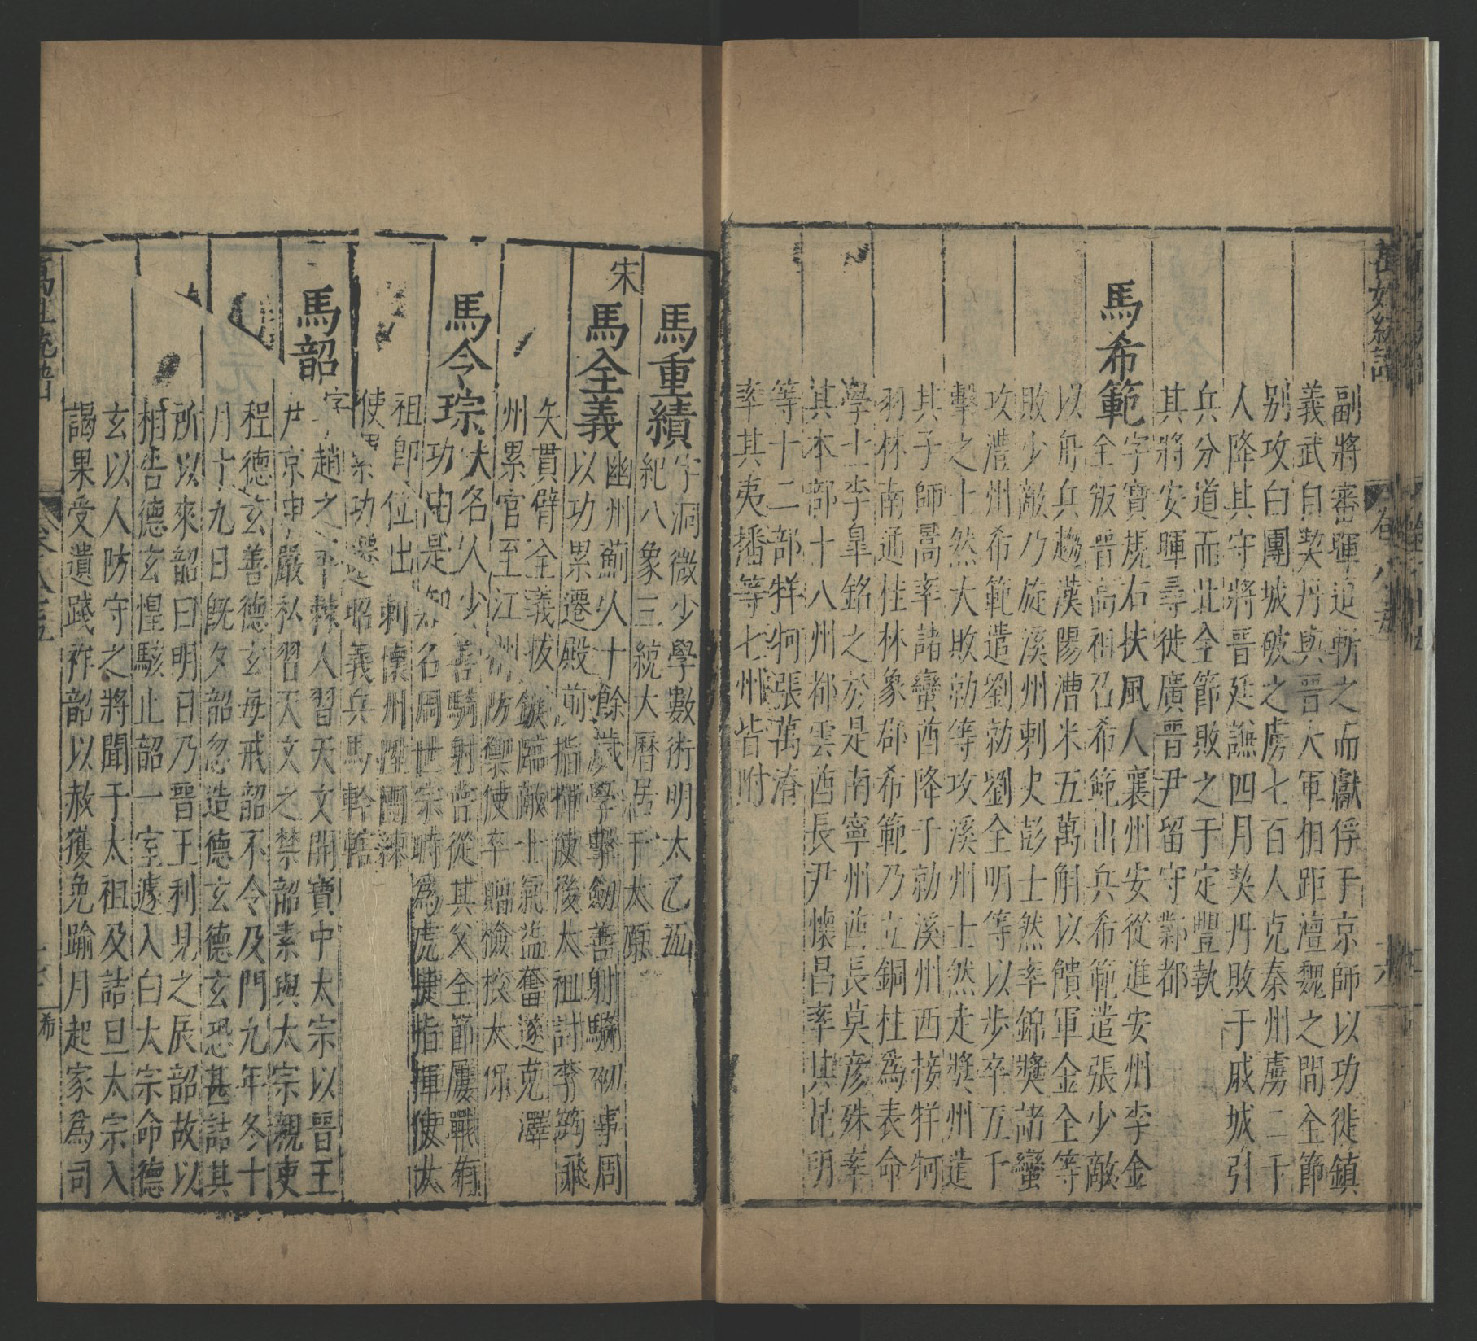 萬姓統譜
卷八十五
副將審暉追斬之而獻俘于京師以功徙鎮
義武自契丹與晉大軍相距澶魏之間全節
别攻白團城破之虜七百人克秦州虜二千
人降其守將晉廷謙四月契丹敗于戚城引
兵分道而北全節敗之于定豐執
其將安暉尋徙廣晉尹留守鄴都
馬希範字寶規右扶風人襄州安從進安州李金
全叛晉高祖召希範出兵希範遣張少敵
以舟兵趨漢陽漕米五萬斛以饋軍金全等
敗少敵乃旋溪州刺史彭士然率錦獎諸蠻
攻澧州希範遣劉勍劉全明等以步卒五千
擊之士然大敗勍等攻溪州士然走獎州遣
其子師暠率諸蠻酋降于勍溪州西接牂牁
羽林南通桂林象郡希範乃立銅柱爲表命
學士李臯銘之於是南寧州酋長莫彦殊率
其本部十八州都雲酋長尹懷昌率其昆明
等十二部牂牁張萬濬
率其夷播等七州皆附
馬重績字洞微少學數術明太乙五
紀八象三統大曆居于太原
宋
馬全義幽州薊人十餘歲學擊劒善射騎初事周
以功累遷殿前指揮使後太祖討李筠飛
矢貫臂全義拔鏃臨敵士氣益奮遂克澤
州累官至江州防禦使卒贈檢校太保
馬令琮大名人少善騎射嘗從其父全節屢戰有
功由是知名周世宗時爲虎捷指揮使太
祖即位出刺懷州澤團練
使累功遷昭義兵馬鈐轄
馬韶字趙之平棘人習天文開寶中太宗以晉王
尹京申嚴私習天文之禁韶素與太宗親吏
程德玄善德玄每戒韶不令及門九年冬十
月十九日旣夕韶忽造德玄德玄恐甚詰其
所以來韶曰明日乃晉王利見之辰韶故以
相告德玄惶駭止韶一室遽入白太宗命德
玄以人防守之將聞于太祖及詰旦太宗入
謁果受遺踐祚韶以赦獲免踰月起家爲司
萬姓統譜
卷八十五